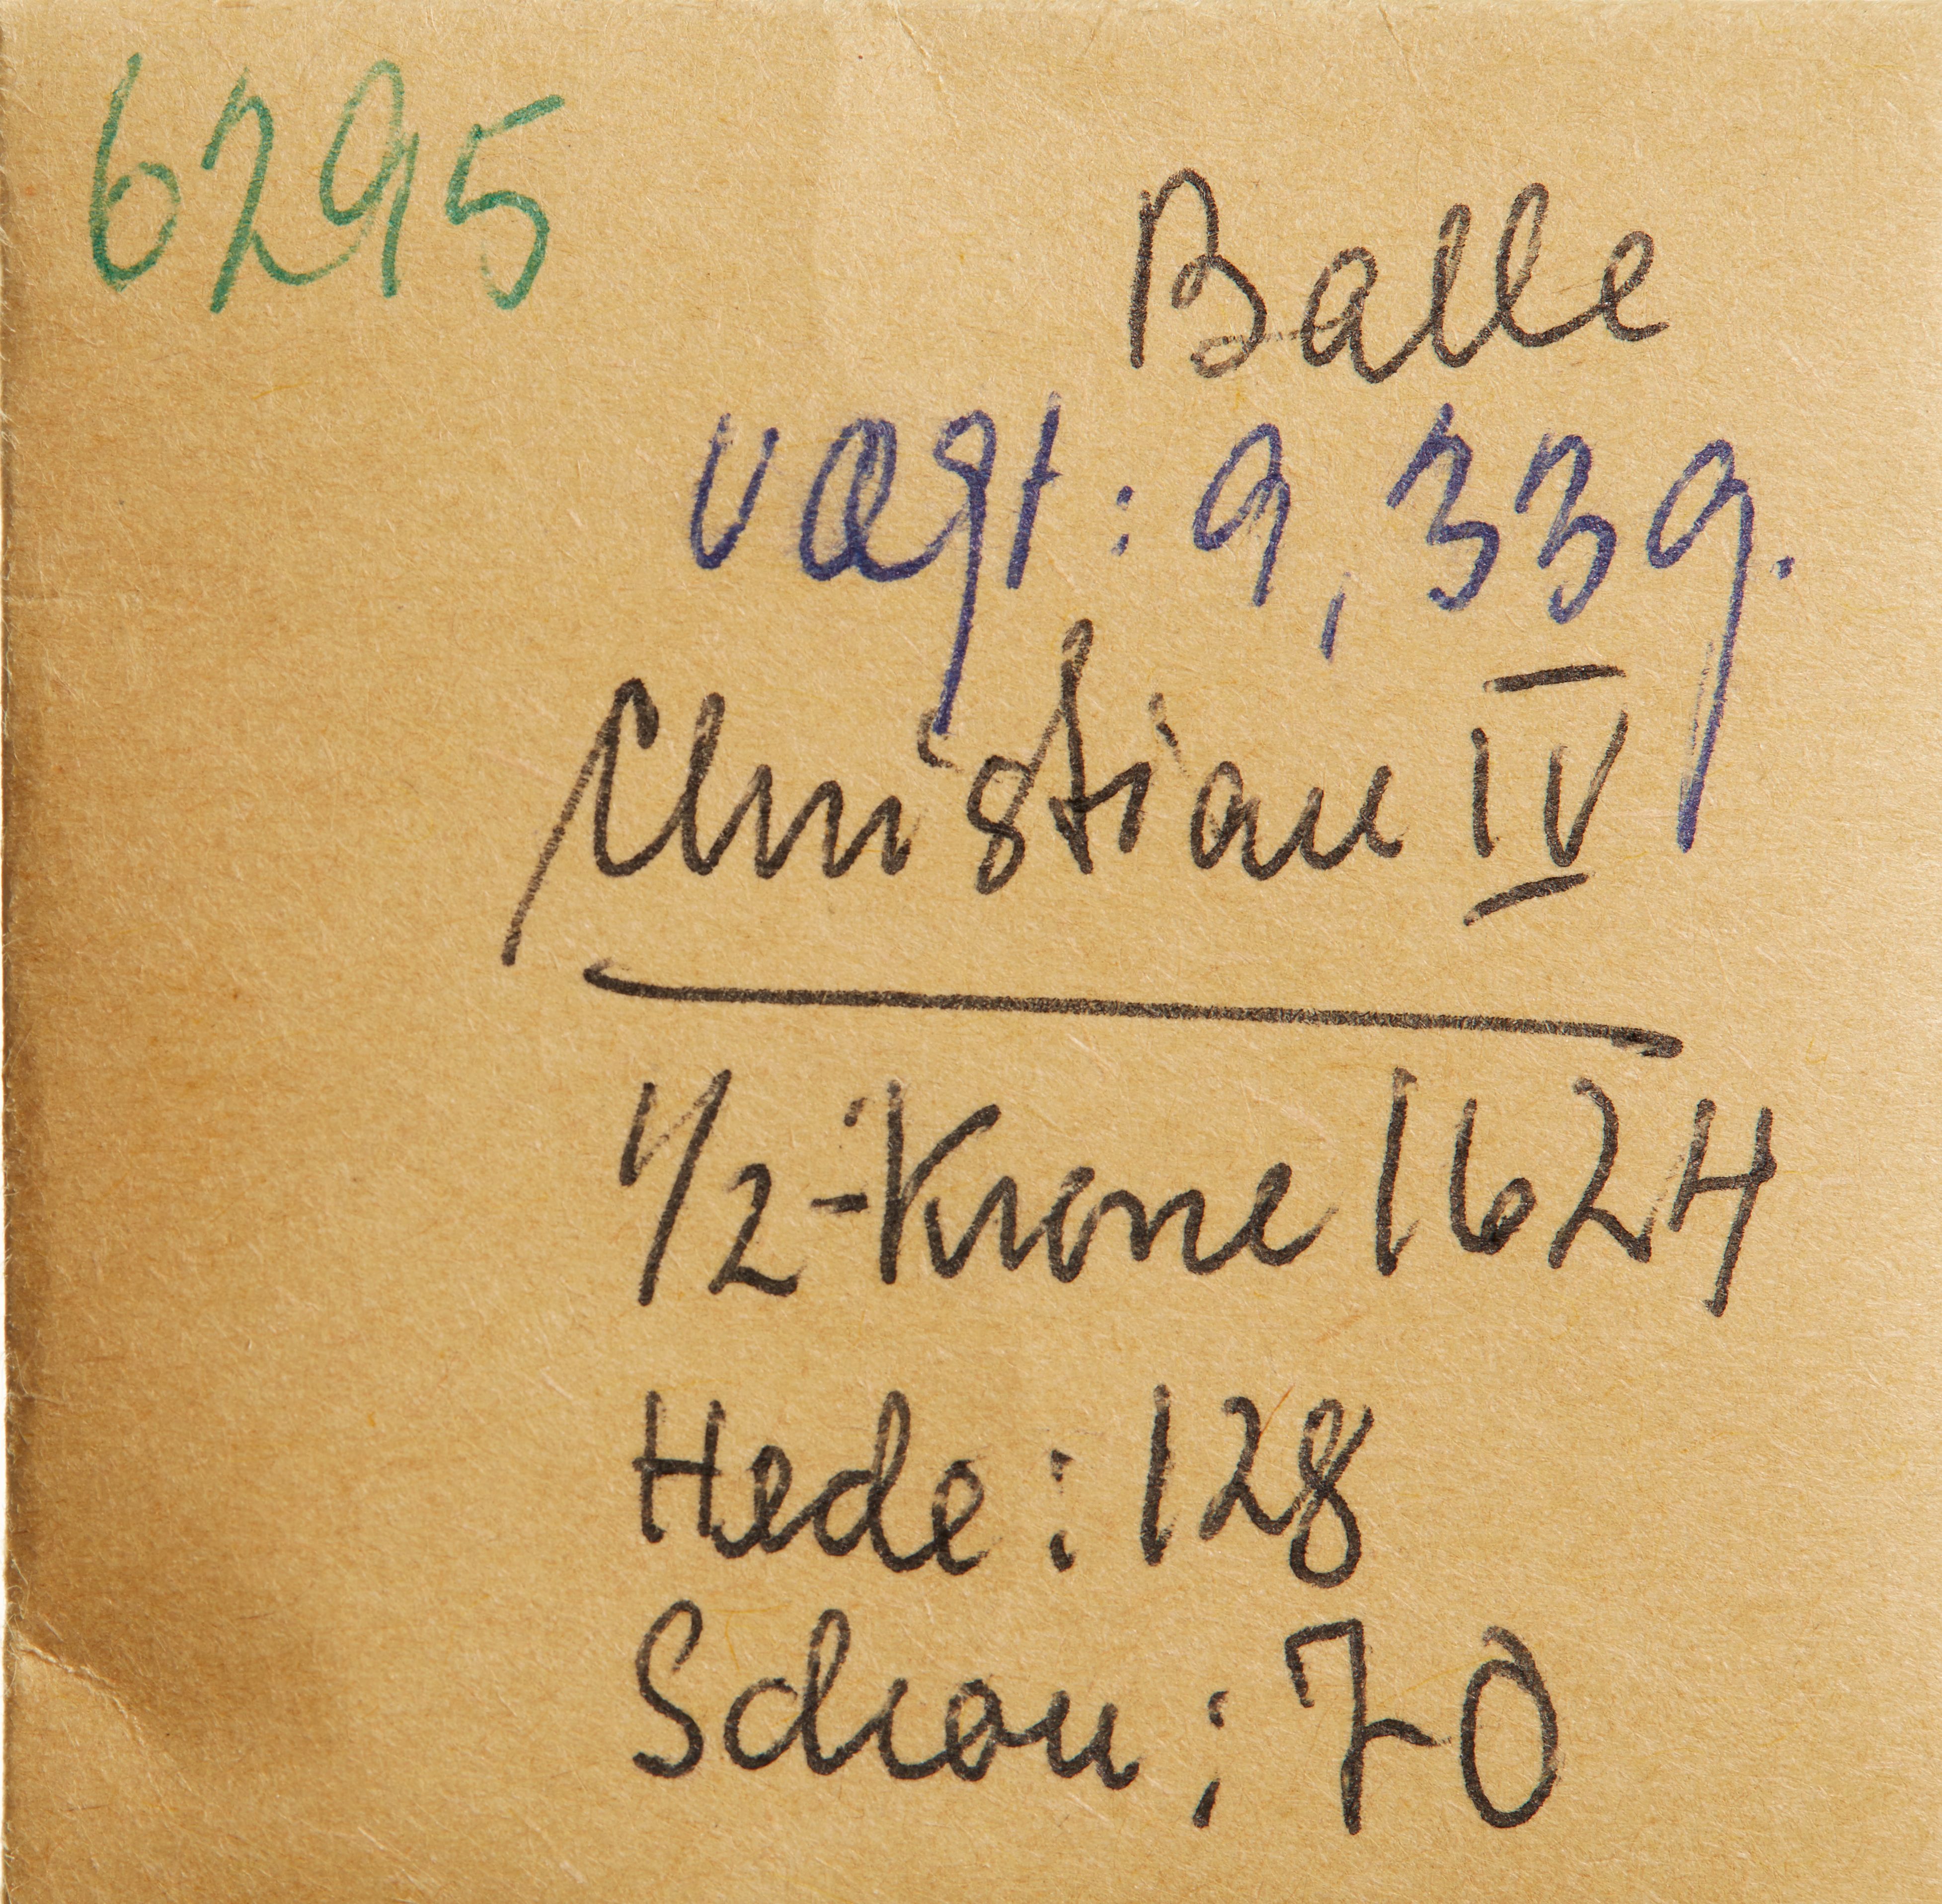 6295
Balle
vægt: 9,33g.
Christian IV
1/2-Krone 1624
Hede: 128
Schou: 70